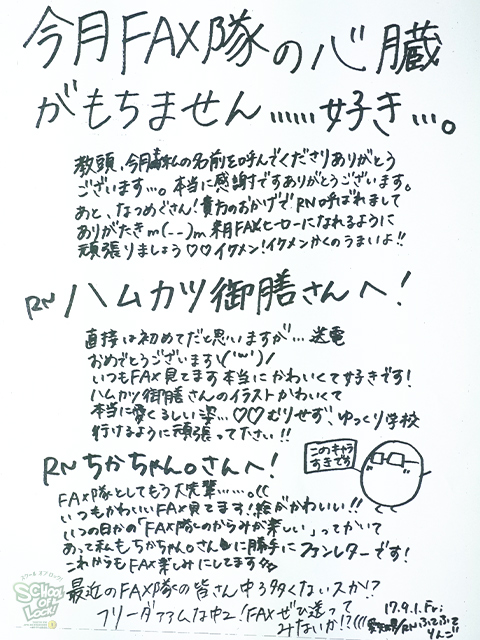 今月FAX隊の心臓
がもちません……好き…。
教頭、今月も私の名前を呼んでくださりありがとう
ございます…。本当に感謝ですありがとうございます。
あと、なつめぐさん!貴方のおかげでRN呼ばれまして
ありがたきm(--)m 来月FAXヒーローになれるように
頑張りましょう♡♡イケメン!イケメンかくのうまいよ!!
RNハムカツ御膳さんへ!
直接は初めてだと思いますが…送電
おめでとうございます\('ω')/
いつもFAX見てます本当にかわいくて好きです!
ハムカツ御膳さんのイラストかわいくて
本当に愛くるしい姿…♡♡むりせず、ゆっくり学校
行けるように頑張って下さい!!
RNちかちゃん。さんへ!
このキャラ
すきです
FAX隊としてもう大先輩……。((
いつもかわいいFAX見てます!絵がかわいい!!
いつの日かの「FAX隊のからみが楽しい」ってかいて
あって私もちかちゃん。さんに勝手にファンレターです!
これからもFAX楽しみにしてます
最近のFAX隊の皆さん中3多くないスか!?
フリーダァムな中2!FAXぜひ送って
みないか!?(((
17.9.1.Fri
スクールオブロック!
SCHOOL
OF
LOCK!